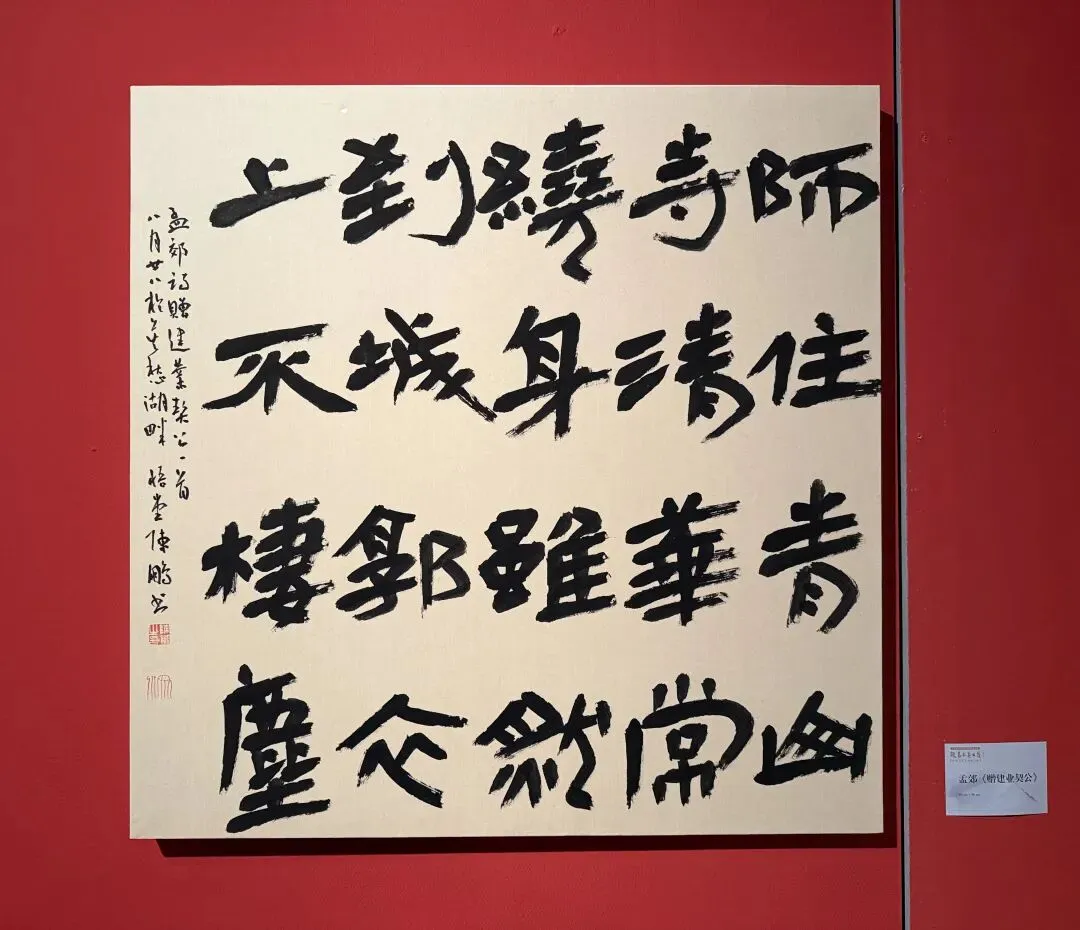 師住青山
寺清華常
繞身雖然
到城郭衣
上不棲塵
孟郊詩贈建業契公一首
八月廿八於莫愁湖畔 悟堂陳鵬書
孟郊《赠建业契公》